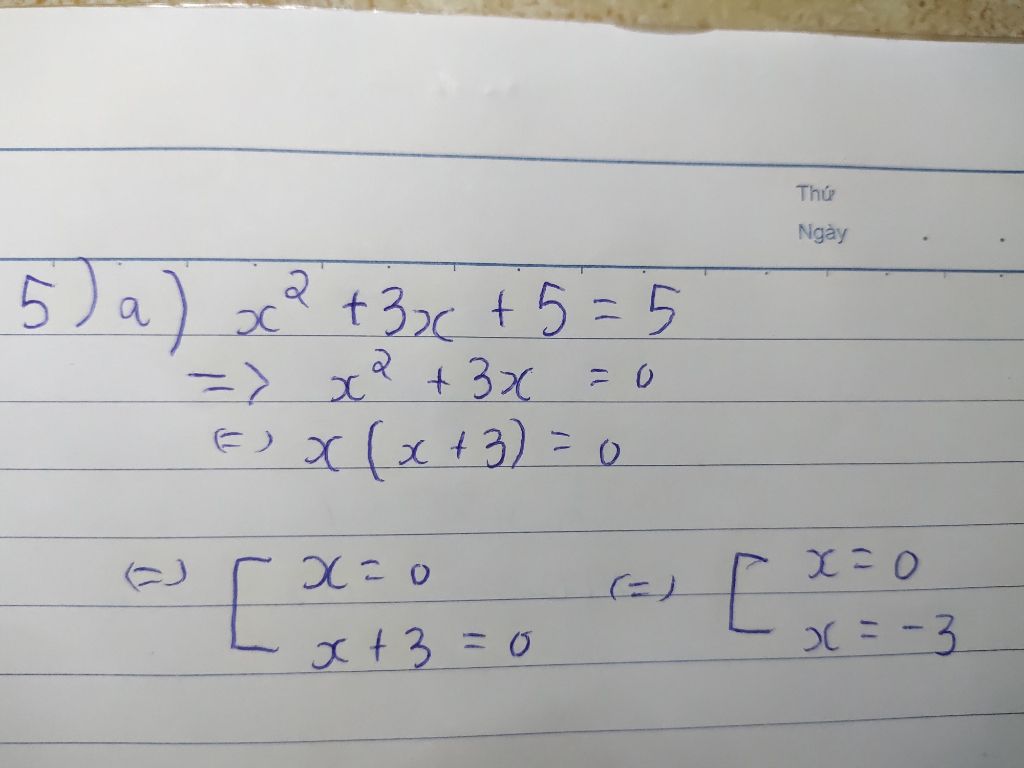 Thứ
Ngày
5) a) x² + 3x + 5 = 5
=> x² + 3x = 0
(=) x (x + 3) = 0
(=) [ x = 0 (=) [ x = 0
x + 3 = 0 x = -3